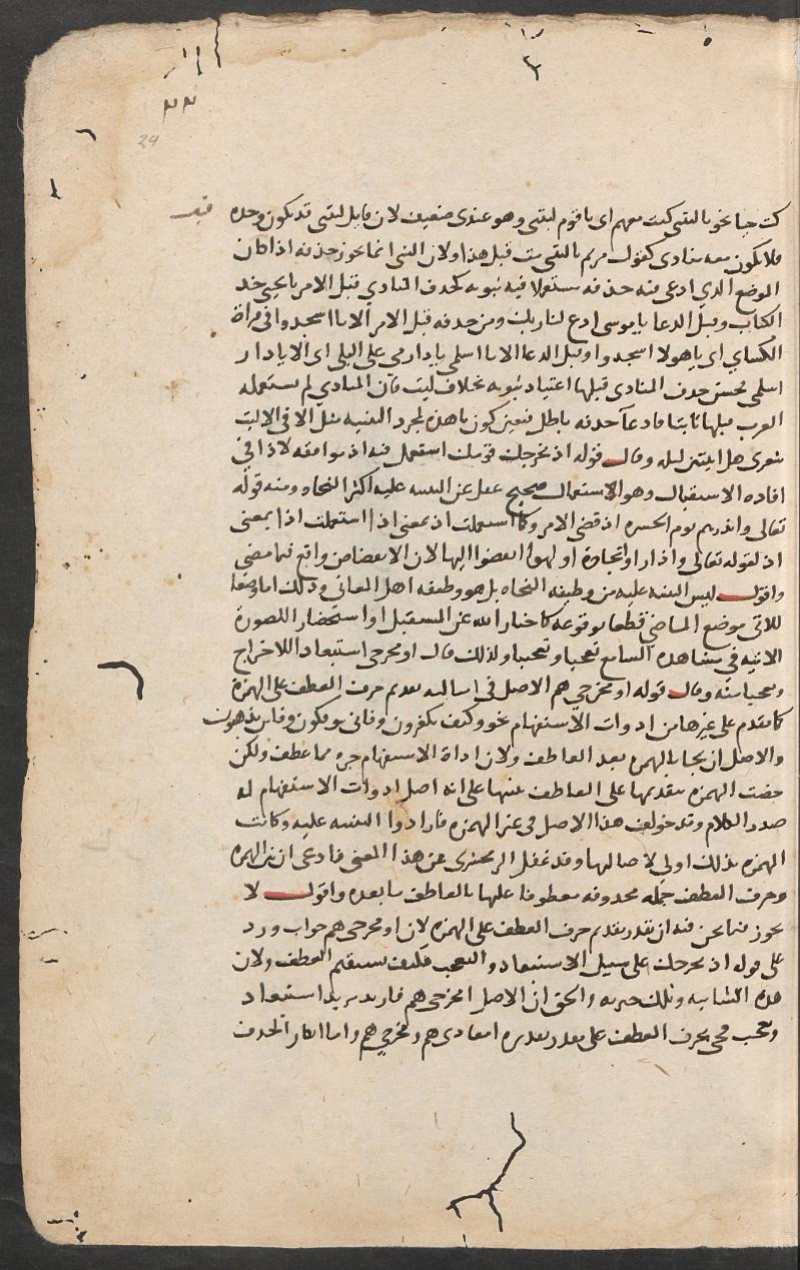 ٣
٢٣
24
كنت حيا نحو يا ليتني كنت معهم اي يا قوم ليتني وهو عندي ضعيف لان قايل ليتني قد يكون وحده
فلا يكون معه منادى كقول مريم يا ليتني مت قبل هذا ولان الشي انما يجوز حذفه اذا كان
الموضع الذي ادعى فيه حذفه مستعملا فيه ثبوته كحذف المنادي قبل الامر يا يحيى خذ
الكتاب وقبل الدعا يا موسى ادع لنا ربك ومن حذفه قبل الامر الا يا اسجدوا في قراة
الكساي اي يا هولا اسجدوا وقبل الدعا الا يا اسلمي يا دار مي على البلى اي الا يا دار
اسلمي فحسن حذف المنادى قبلها اعتياد ثبوته بخلاف ليت فان المنادي لم تستعمله
العرب قبلها ثابتا فادعا حذفه باطل فتعين كون يا هذه لمجرد التنبيه مثل الا في الا ليت
شعري هل ابيتن ليله وقال قوله اذ يخرجك قومك استعمل فيه اذ موافقه لاذا في
افاده الاستقبال وهو الاستعمال صحيح غفل عن التنبيه عليه اكثر النحاه ومنه قوله
تعالى وانذرهم يوم الحسره اذ قضى الامر وكما استعملت اذ بمعنى اذا استعملت اذا بمعنى
اذ لقوله تعالى واذا راوا تجارة او لهوا انفضوا اليها لان الانفضاض واقع فيما مضى
واقول ليس التنبيه عليه من وظيفه النحاه بل هو وظيفه اهل المعاني وذلك اما وضعا
للاتي موضع الماضي قطعا بوقوعه كاخبار الله عن المستقبل او استحضار الصورة
الاتيه في مشاهده السامع تعجبا وتعجيبا ولذلك قال او مخرجي استبعادا للاخراج
وتعجبا منه وقال قوله او مخرجي هم الاصل في امثاله تقديم حرف العطف على الهمزة
كما تقدم على غيرها من ادوات الاستفهام نحو وكيف تكفرون وفانى يوفكون وفاين تذهبون
والاصل ان يجا بالهمزه بعد العاطف ولان اداة الاستفهام جزء مما عطف ولكن
خصت الهمزه بتقديمها على العاطف تنبيها على انه اصل ادوات الاستفهام له
صدر الكلام وقد خولف هذا الاصل في غير الهمزه فارادوا التنبيه عليه وكانت
الهمزه بذلك اولى لاصالتها وقد غفل الزمخشري عن هذا المعنى فادعى ان بين الهمزه
وحرف العطف جمله محذوفه معطوفا عليها بالعاطف ما بعده واقول لا
يجوز فيما نحن فيه ان تقدر تقديم حرف العطف على الهمزه لان او مخرجي هم جواب ورد
على قوله اذ يخرجك على سبيل الاستبعاد والتعجب فكيف يستقيم العطف ولان
هذه انشاييه وتلك خبريه والحق ان الاصل امخرجي هم فاريد مزيد استبعاد
وتعجب فجي بحرف العطف على مقدر تقديره امعادي هم ومخرجي هم واما انكار الحذف